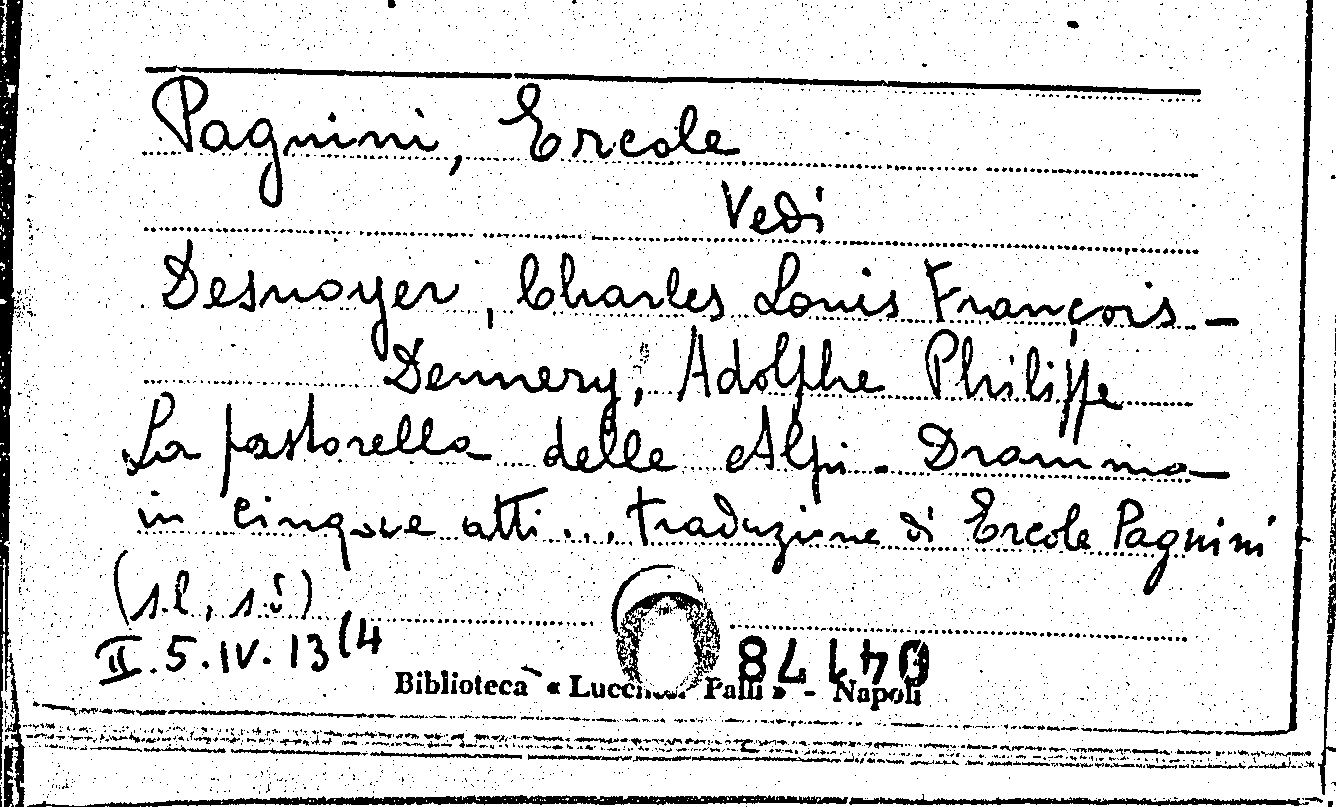 Pagnini, Ercole
Vedi
Desnoyer, Charles Louis François -
Dennery, Adolphe Philippe
La pastorella delle Alpi - Dramma
in cinque atti... traduzione di Ercole Pagnini -
(s.l, s.d)
II.5.IV.13(4
Biblioteca « Lucchesi Palli » - Napoli